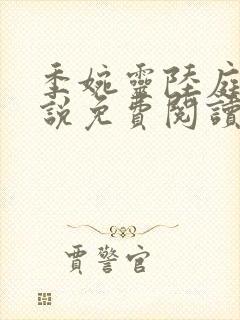 季婉靈陸庭
說免費閱讀
賈警官